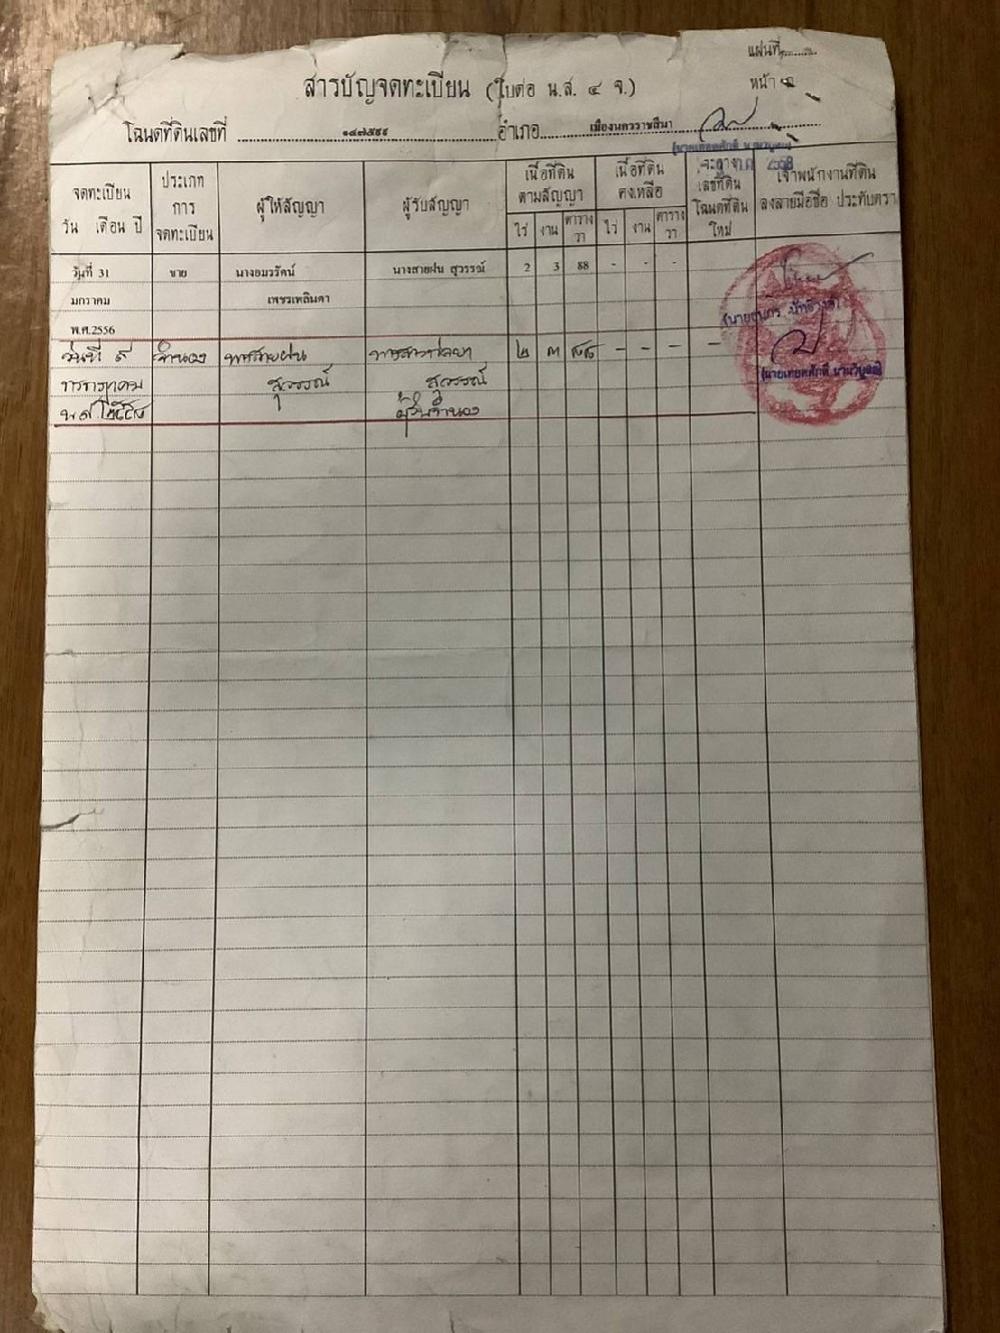 แผ่นที่
สารบัญจดทะเบียน (ใบต่อ น.ส. ๔ จ.)
หน้า
โฉนดที่ดินเลขที่ ๑๔๗๕๙๙ อำเภอ เมืองนครราชสีมา
จดทะเบียน วัน เดือน ปี
ประเภท การ จดทะเบียน
ผู้ให้สัญญา
ผู้รับสัญญา
เนื้อที่ดิน ตามสัญญา
ไร่ งาน ตาราง วา
เนื้อที่ดิน คงเหลือ
ไร่ งาน ตาราง วา
เลขที่ดิน โฉนดที่ดิน ใหม่
เจ้าพนักงานที่ดิน ลงลายมือชื่อ ประทับตรา
วันที่ 31 ขาย นางอมรรัตน์ นางสายฝน สุวรรณ์ 2 3 88 - - -
มกราคม เพชรเหลินดา
พ.ศ.2556
วันที่ ๙ จำนอง นางสายฝน ๒ ๓ ๘๘ - - - -
กรกฎาคม สุวรรณ์ สุวรรณ์
ผู้รับจำนอง
(นายเทอดศักดิ์ นามวิบูลย์)